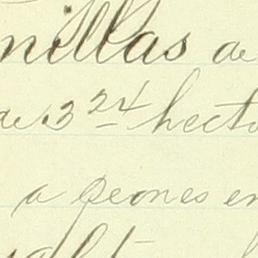 nillas de
de 3 24 hecto
a peones en